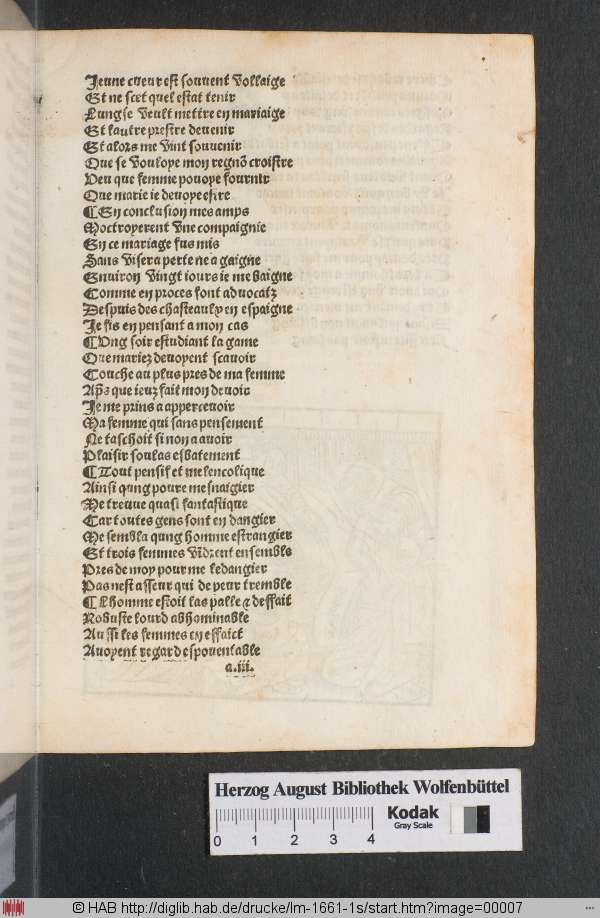 Jeune cueur est souuent vollaige
Et ne scet quel estat tenir
Lung se veult mettre en mariaige
Et lautre prestre deuenir
Et alors me vint souuenir
Que se vouloye mon regnõ croistre
Veu que femme pouoye fournir
Que marie ie deuoye estre
¶ En conclusion mes amys
Moctroyerent vne compaignie
En ce mariage fus mis
Sans viser a perte ne a gaigne
Enuiron vingt iours ie me baigne
Comme en proces font aduocatz
Despuis des chasteaulx en espaigne
Je fis en pensant a mon cas
¶ Ung soir estudiant la game
Que mariez deuoyent scauoir
Couche au plus pres de ma femme
Apѕ que ieuz fait mon deuoir
Je me prins a apperceuoir
Ma femme qui sans pensement
Ne taschoit si non a auoir
Plaisir soulas esbatement
¶ Tout pensif et melencolique
Ainsi qung poure mesnaigier
Me treuue quasi fantastique
Car toutes gens sont en dangier
Me sembla qung homme estrangier
Et trois femmes vĩdrent ensemble
Pres de moy pour me ledangier
Pas nest asseur qui de peur tremble
¶ Lhomme estoit las palle & deffait
Robuste lourd abhominable
Aussi les femmes en effaict
Auoyent regard espouentable
a.iii.
Herzog August Bibliothek Wolfenbüttel
0 1 2 3 4
Kodak
Gray Scale
© HAB http://diglib.hab.de/drucke/lm-1661-1s/start.htm?image=00007